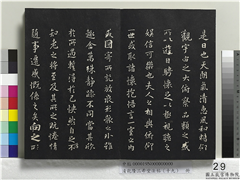 是日也天朗氣清惠風和暢仰
觀宇宙之大俯察品類之盛
所以遊目騁懷足以極視聽之
娛信可樂也夫人之相與俯仰
一世或取諸懷抱悟言一室之內
或因寄所託放浪形骸之外雖
趣舍萬殊靜躁不同當其欣
於所遇暫得於己快然自足不
知老之將至及其所之既惓情
隨事遷感慨係之矣向之所
29
國立故宮博物院